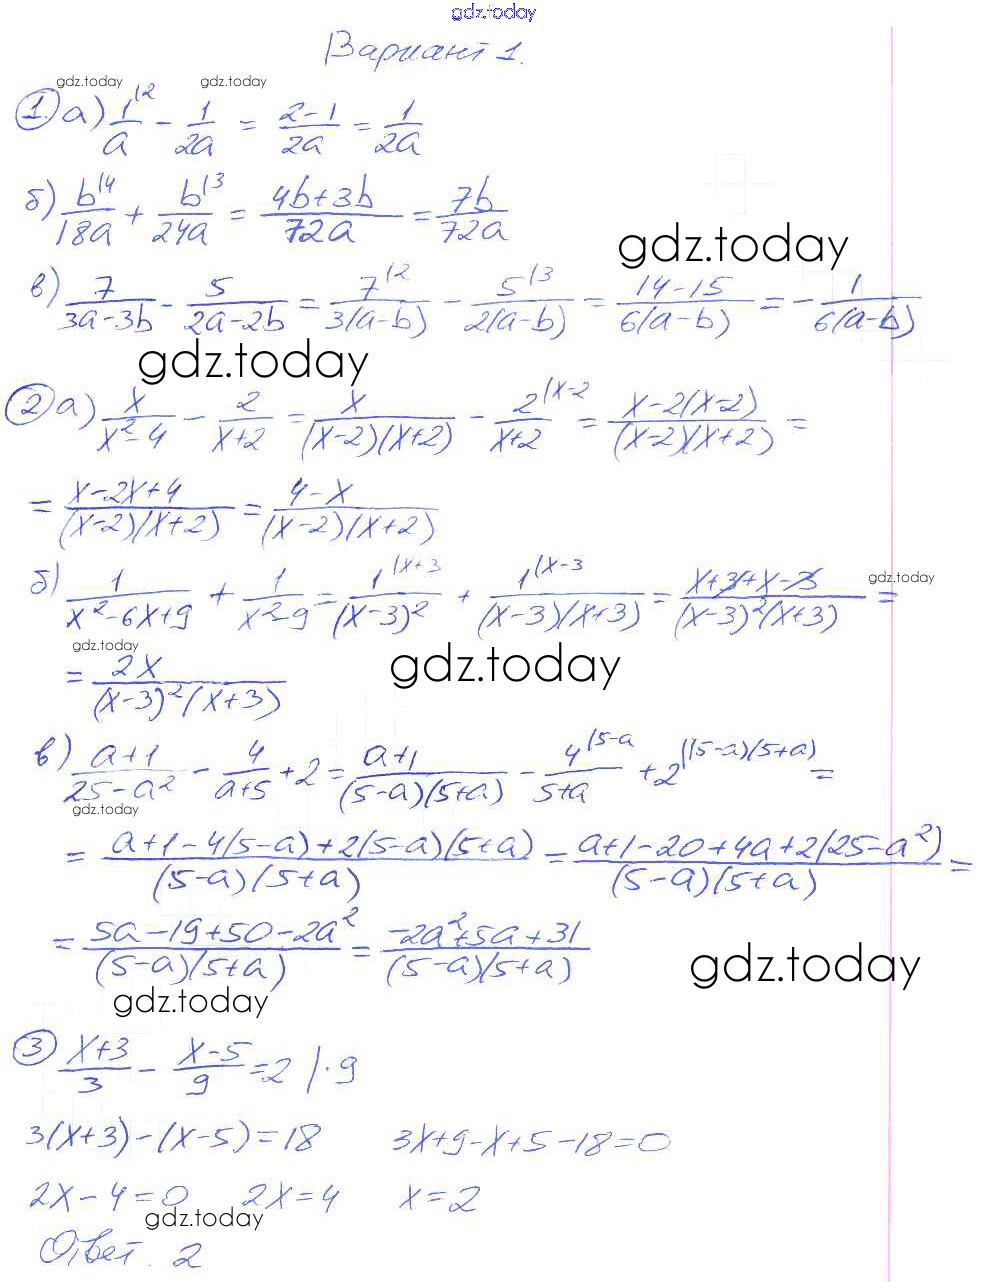 gdz.today
Вариант 1.
gdz.today gdz.today
1. а) 1/a^(2 - 1/2a = 2-1/2a = 1/2a
б) b/18a^(4 + b/24a^(3 = 4b+3b/72a = 7b/72a
gdz.today
в) 7/3a-3b - 5/2a-2b = 7/3(a-b)^(2 - 5/2(a-b)^(3 = 14-15/6(a-b) = - 1/6(a-b)
gdz.today
2 а) x/x²-4 - 2/x+2 = x/(x-2)(x+2) - 2/x+2^(x-2 = x-2(x-2)/(x-2)(x+2) =
= x-2x+4/(x-2)(x+2) = 4-x/(x-2)(x+2)
б) 1/x²-6x+9 + 1/x²-9 = 1/(x-3)²^(x+3 + 1/(x-3)(x+3)^(x-3 = x+3+x-3/(x-3)²(x+3) =
gdz.today
gdz.today gdz.today
= 2x/(x-3)²(x+3)
в) a+1/25-a² - 4/a+5 + 2 = a+1/(5-a)(5+a) - 4/5+a^(5-a + 2^((5-a)(5+a) =
gdz.today
= a+1-4(5-a)+2(5-a)(5+a)/(5-a)(5+a) = a+1-20+4a+2(25-a²)/(5-a)(5+a) =
= 5a-19+50-2a²/(5-a)(5+a) = -2a²+5a+31/(5-a)(5+a)
gdz.today
gdz.today
3 x+3/3 - x-5/9 = 2 |·9
3(x+3)-(x-5)=18 3x+9-x+5-18=0
2x-4=0 2x=4 x=2
gdz.today
Ответ. 2